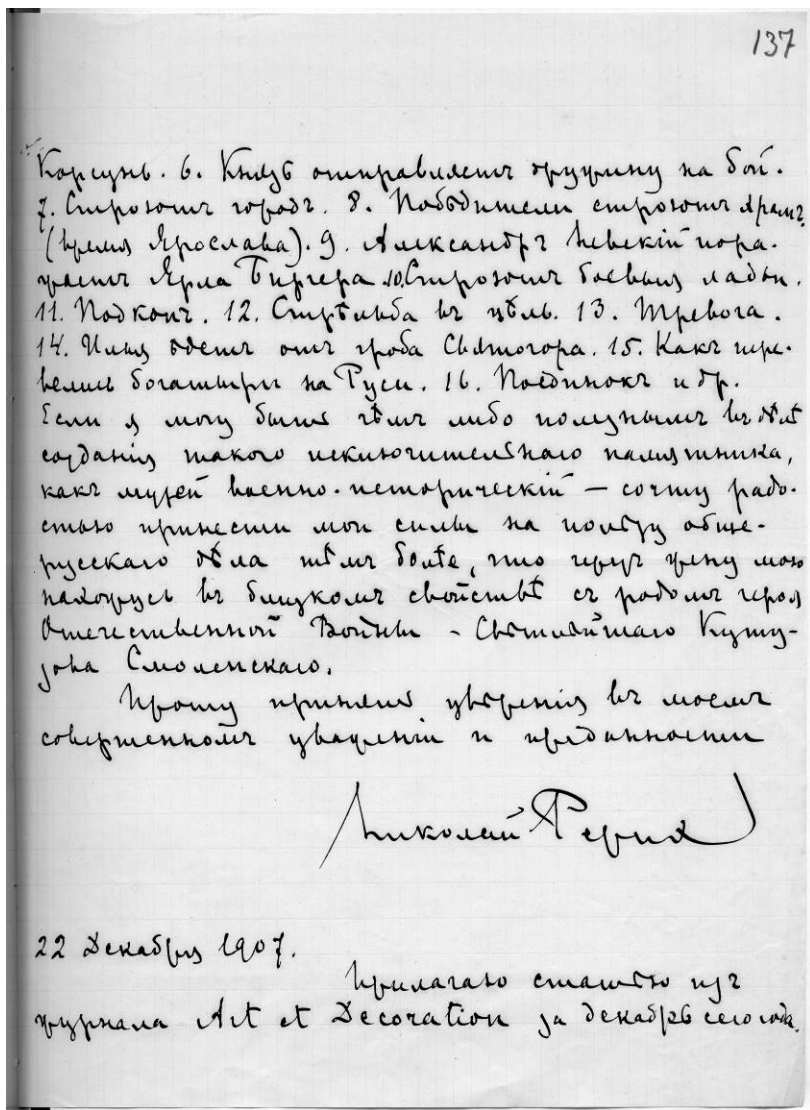 137
Корсунь. 6. Князь отправляетъ дружину на бой.
7. Строютъ городъ. 8. Побѣдители строютъ храмъ
(время Ярослава). 9. Александръ Невскій пора-
жаетъ Ярла Биргера 10. Строютъ боевыя ладьи.
11. Подкопъ. 12. Стрѣльба въ цѣль. 13. Тревога.
14. Илья ѣдетъ отъ гроба Святогора. 15. Какъ пере-
велись богатыри на Руси. 16. Поединокъ и др.
Если я могу быть чѣмъ либо полезнымъ въ дѣлѣ
созданія такого исключительнаго памятника,
какъ музей военно-историческій — сочту радо-
стью принести мои силы на пользу обще-
русскаго дѣла тѣмъ болѣе, что черезъ жену мою
нахожусь въ близкомъ свойствѣ съ родомъ героя
Отечественной Войны - Свѣтлѣйшаго Куту-
зова Смоленскаго.
Прошу принять увѣренія въ моемъ
совершенномъ уваженіи и преданности
Николай Рерих
22 Декабря 1907.
Прилагаю статью изъ
журнала Art et Decoration за декабрь сего года.